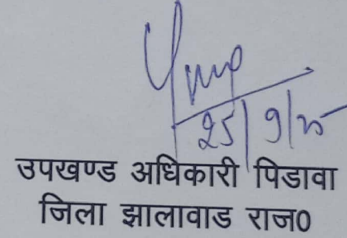 25/9/25
उपखण्ड अधिकारी पिडावा
जिला झालावाड राज0